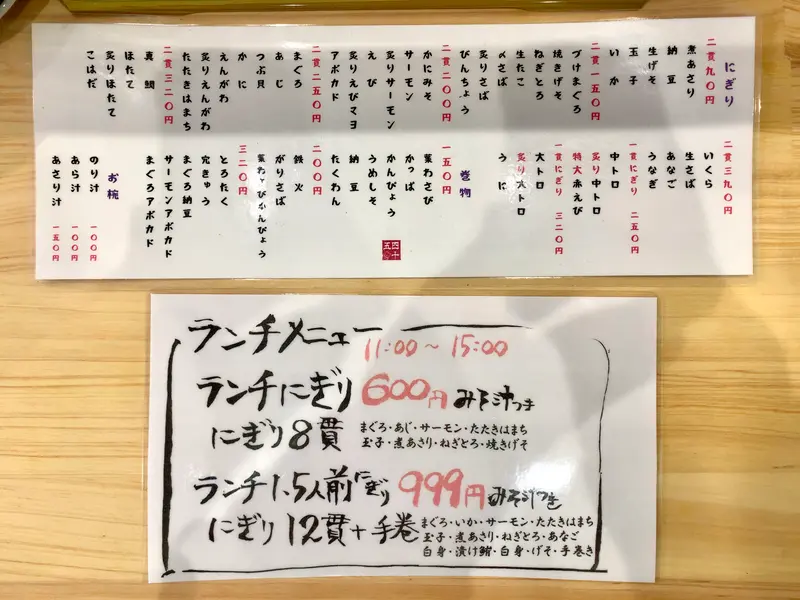 にぎり
二貫九〇円
煮あさり
納豆
生げそ
玉子
いか
二貫一五〇円
づけまぐろ
焼きげそ
ねぎとろ
生たこ
〆さば
炙りさば
びんちょう
二貫二〇〇円
かにみそ
サーモン
炙りサーモン
えび
炙りえびマヨ
アボカド
二貫二五〇円
まぐろ
あじ
つぶ貝
かに
えんがわ
炙りえんがわ
たたきはまち
二貫三二〇円
真鯛
ほたて
炙りほたて
こはだ
二貫三九〇円
いくら
生さば
あなご
うなぎ
一貫にぎり 二五〇円
中トロ
炙り中トロ
特大赤えび
一貫にぎり 三二〇円
大トロ
炙り大トロ
うに
巻物
一五〇円
葉わさび
かっぱ
かんぴょう
うめしそ
納豆
たくわん
二〇〇円
鉄火
がりさば
葉わさびかんぴょう
三二〇円
とろたく
穴きゅう
まぐろ納豆
サーモンアボカド
まぐろアボカド
お椀
のり汁 一〇〇円
あら汁 一〇〇円
あさり汁 一五〇円
四十五
ランチメニュー 11:00〜15:00
ランチにぎり 600円 みそ汁つき
にぎり8貫 まぐろ・あじ・サーモン・たたきはまち
玉子・煮あさり・ねぎとろ・焼きげそ
ランチ1.5人前にぎり 999円 みそ汁つき
にぎり12貫+手巻 まぐろ・いか・サーモン・たたきはまち
玉子・煮あさり・ねぎとろ・あなご
白身・漬け鮪・白身・げそ・手巻き